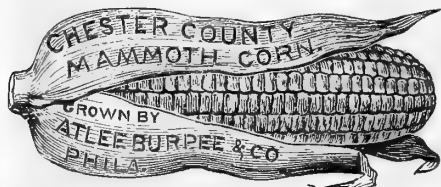 CHESTER COUNTY
MAMMOTH CORN.
GROWN BY
ATLEE BURPEE & CO
PHILA.